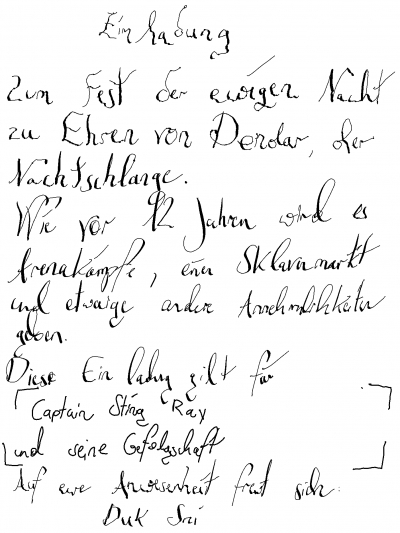 Einladung
Zum Fest der ewigen Nacht
zu Ehren von Dendar, der
Nachtschlange.
Wie vor 12 Jahren wird es
Arenakämpfe, einen Sklavenmarkt
und etwaige andere Annehmlichkeiten
geben.
Diese Einladung gilt für
Captain Sting Ray
und seine Gefolgschaft
Auf eure Anwesenheit freut sich:
Duk